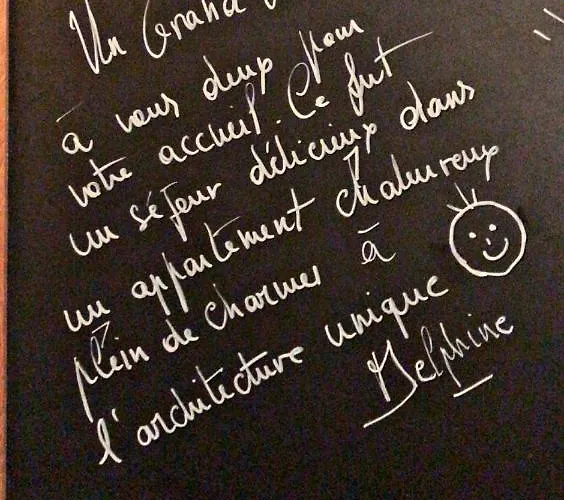 Un Grand
à vous deux pour
votre accueil. Ce fut
un séjour délicieux dans
un appartement chaleureux
plein de charmes à
l'architecture unique
Delphine